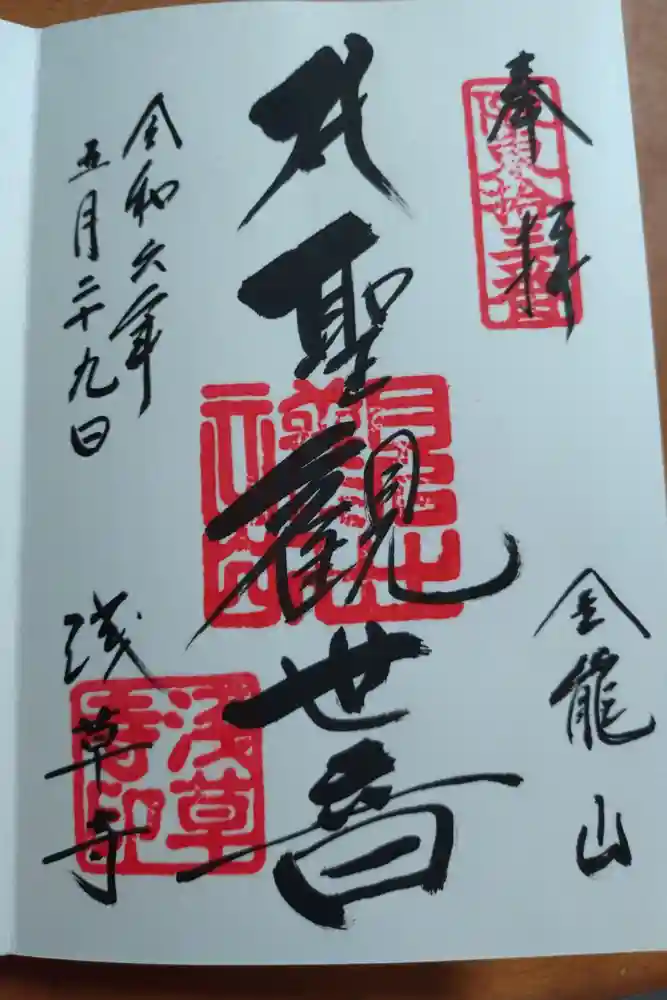 奉拝
拾三番
金龍山
聖観世音
令和六年
五月二十九日
浅草寺
浅草